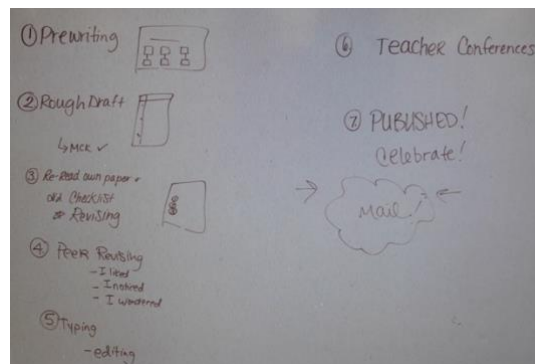 ① Prewriting
② Rough Draft
↳ MCK ✓
③ Re-Read own paper
Checklist
Revising
④ Peer Revising
- I liked
- I noticed
- I wondered
⑤ Typing
- editing
⑥ Teacher Conferences
⑦ PUBLISHED!
Celebrate!
Mail!